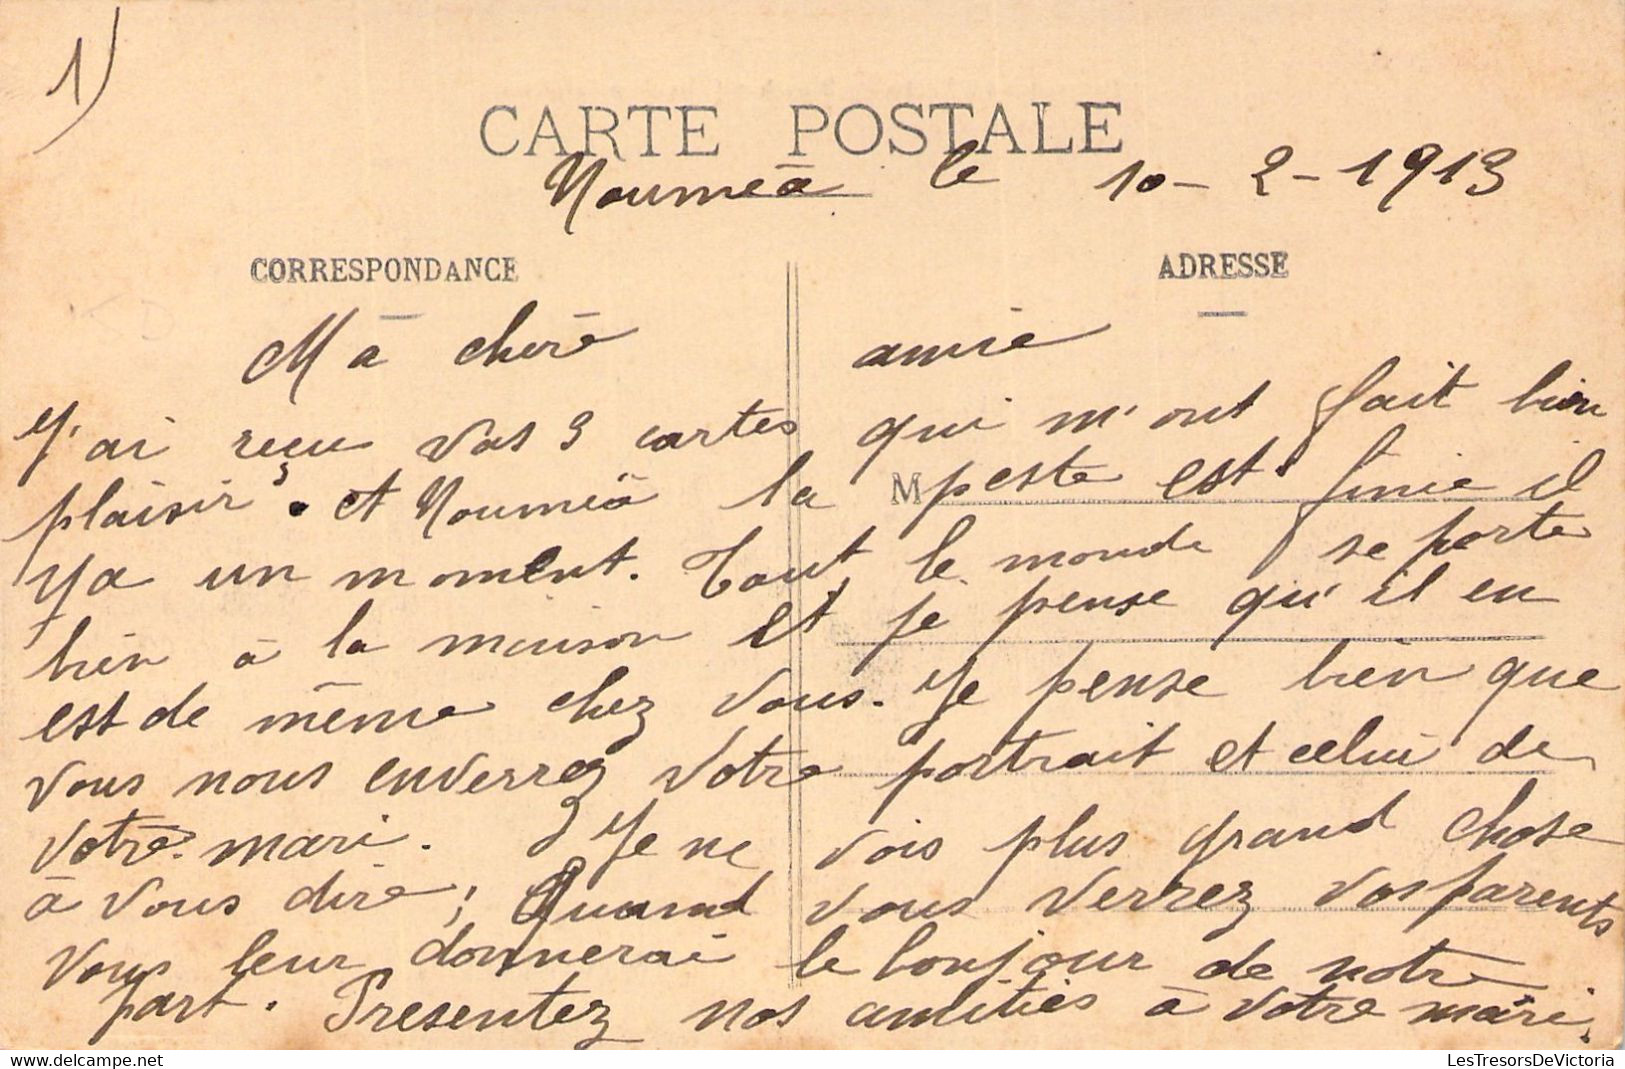 1)
CARTE POSTALE
Nouméa le 10-2-1913
CORRESPONDANCE ADRESSE
Ma chère amie
J'ai reçu vos 3 cartes qui m'ont fait bien
plaisir. et Nouméa la peste est finie il
M
ya un moment. Tout le monde se porte
bien à la maison et je pense qu'il en
est de même chez vous. Je pense bien que
vous nous enverrez votre portrait et celui de
votre mari. Je ne vois plus grand chose
à vous dire; Quand vous verrez vos parents
vous leur donnerai le bonjour de notre
part. Presentez nos amitiés à votre mari.
delcampe.net
LesTresorsDeVictoria